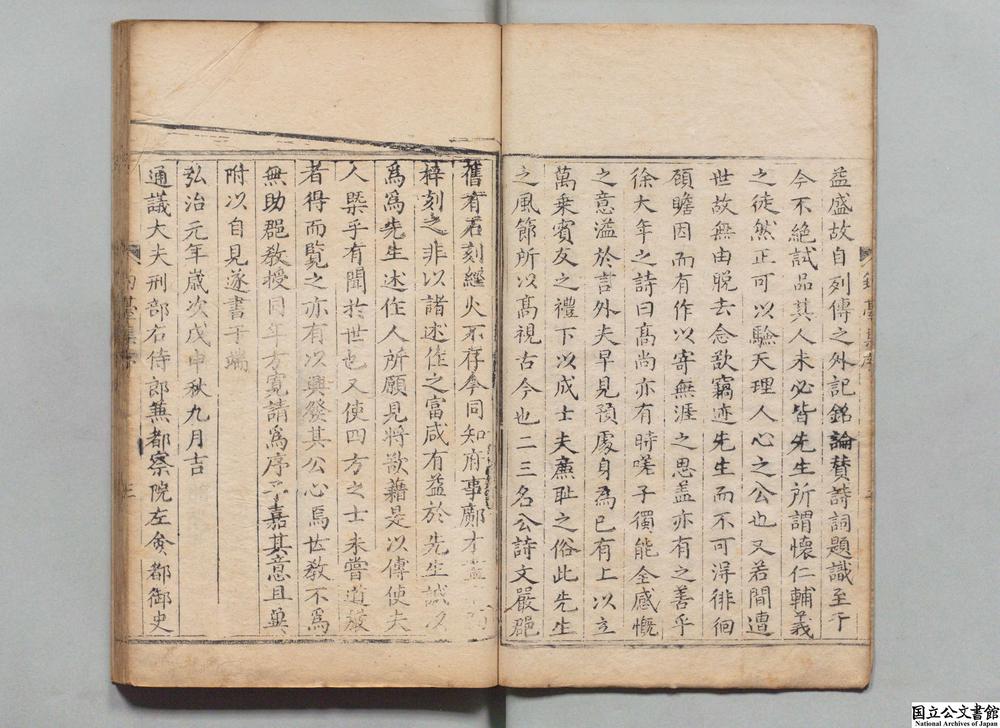 益盛故自列傳之外記銘論賛詩詞題識至于
今不絶試品其人未必皆先生所謂懷仁輔義
之徒然正可以驗天理人心之公也又若間遭
世故無由脱去念欲竊迹先生而不可淂徘徊
碩瞻因而有作以寄無涯之思盖亦有之善乎
徐大年之詩曰髙尚亦有時嗟子獨能全感慨
之意溢於言外夫早見預處身為已有上以立
萬乗賓友之禮下以成士夫亷耻之俗此先生
之風節所以髙視古今也二三名公詩文嚴郡
舊有君刻經火不存今同知府事鄺才
梓刻之非以諸述作之富咸有益於先生誠以
爲爲先生述作人所願見將欲藉是以傳使夫
人槩乎有聞扵世也又使四方之士未嘗道嚴
者得而覧之亦有以興發其公心焉世教不爲
無助郡教授同年方寛請爲序予嘉其意且
附以自見遂書于端
弘治元年歳次戊申秋九月吉
通議大夫刑部右侍郎蕪都察院左僉都御史
釣臺集序
釣臺集序
三
国立公文書館
National Archives of Japan